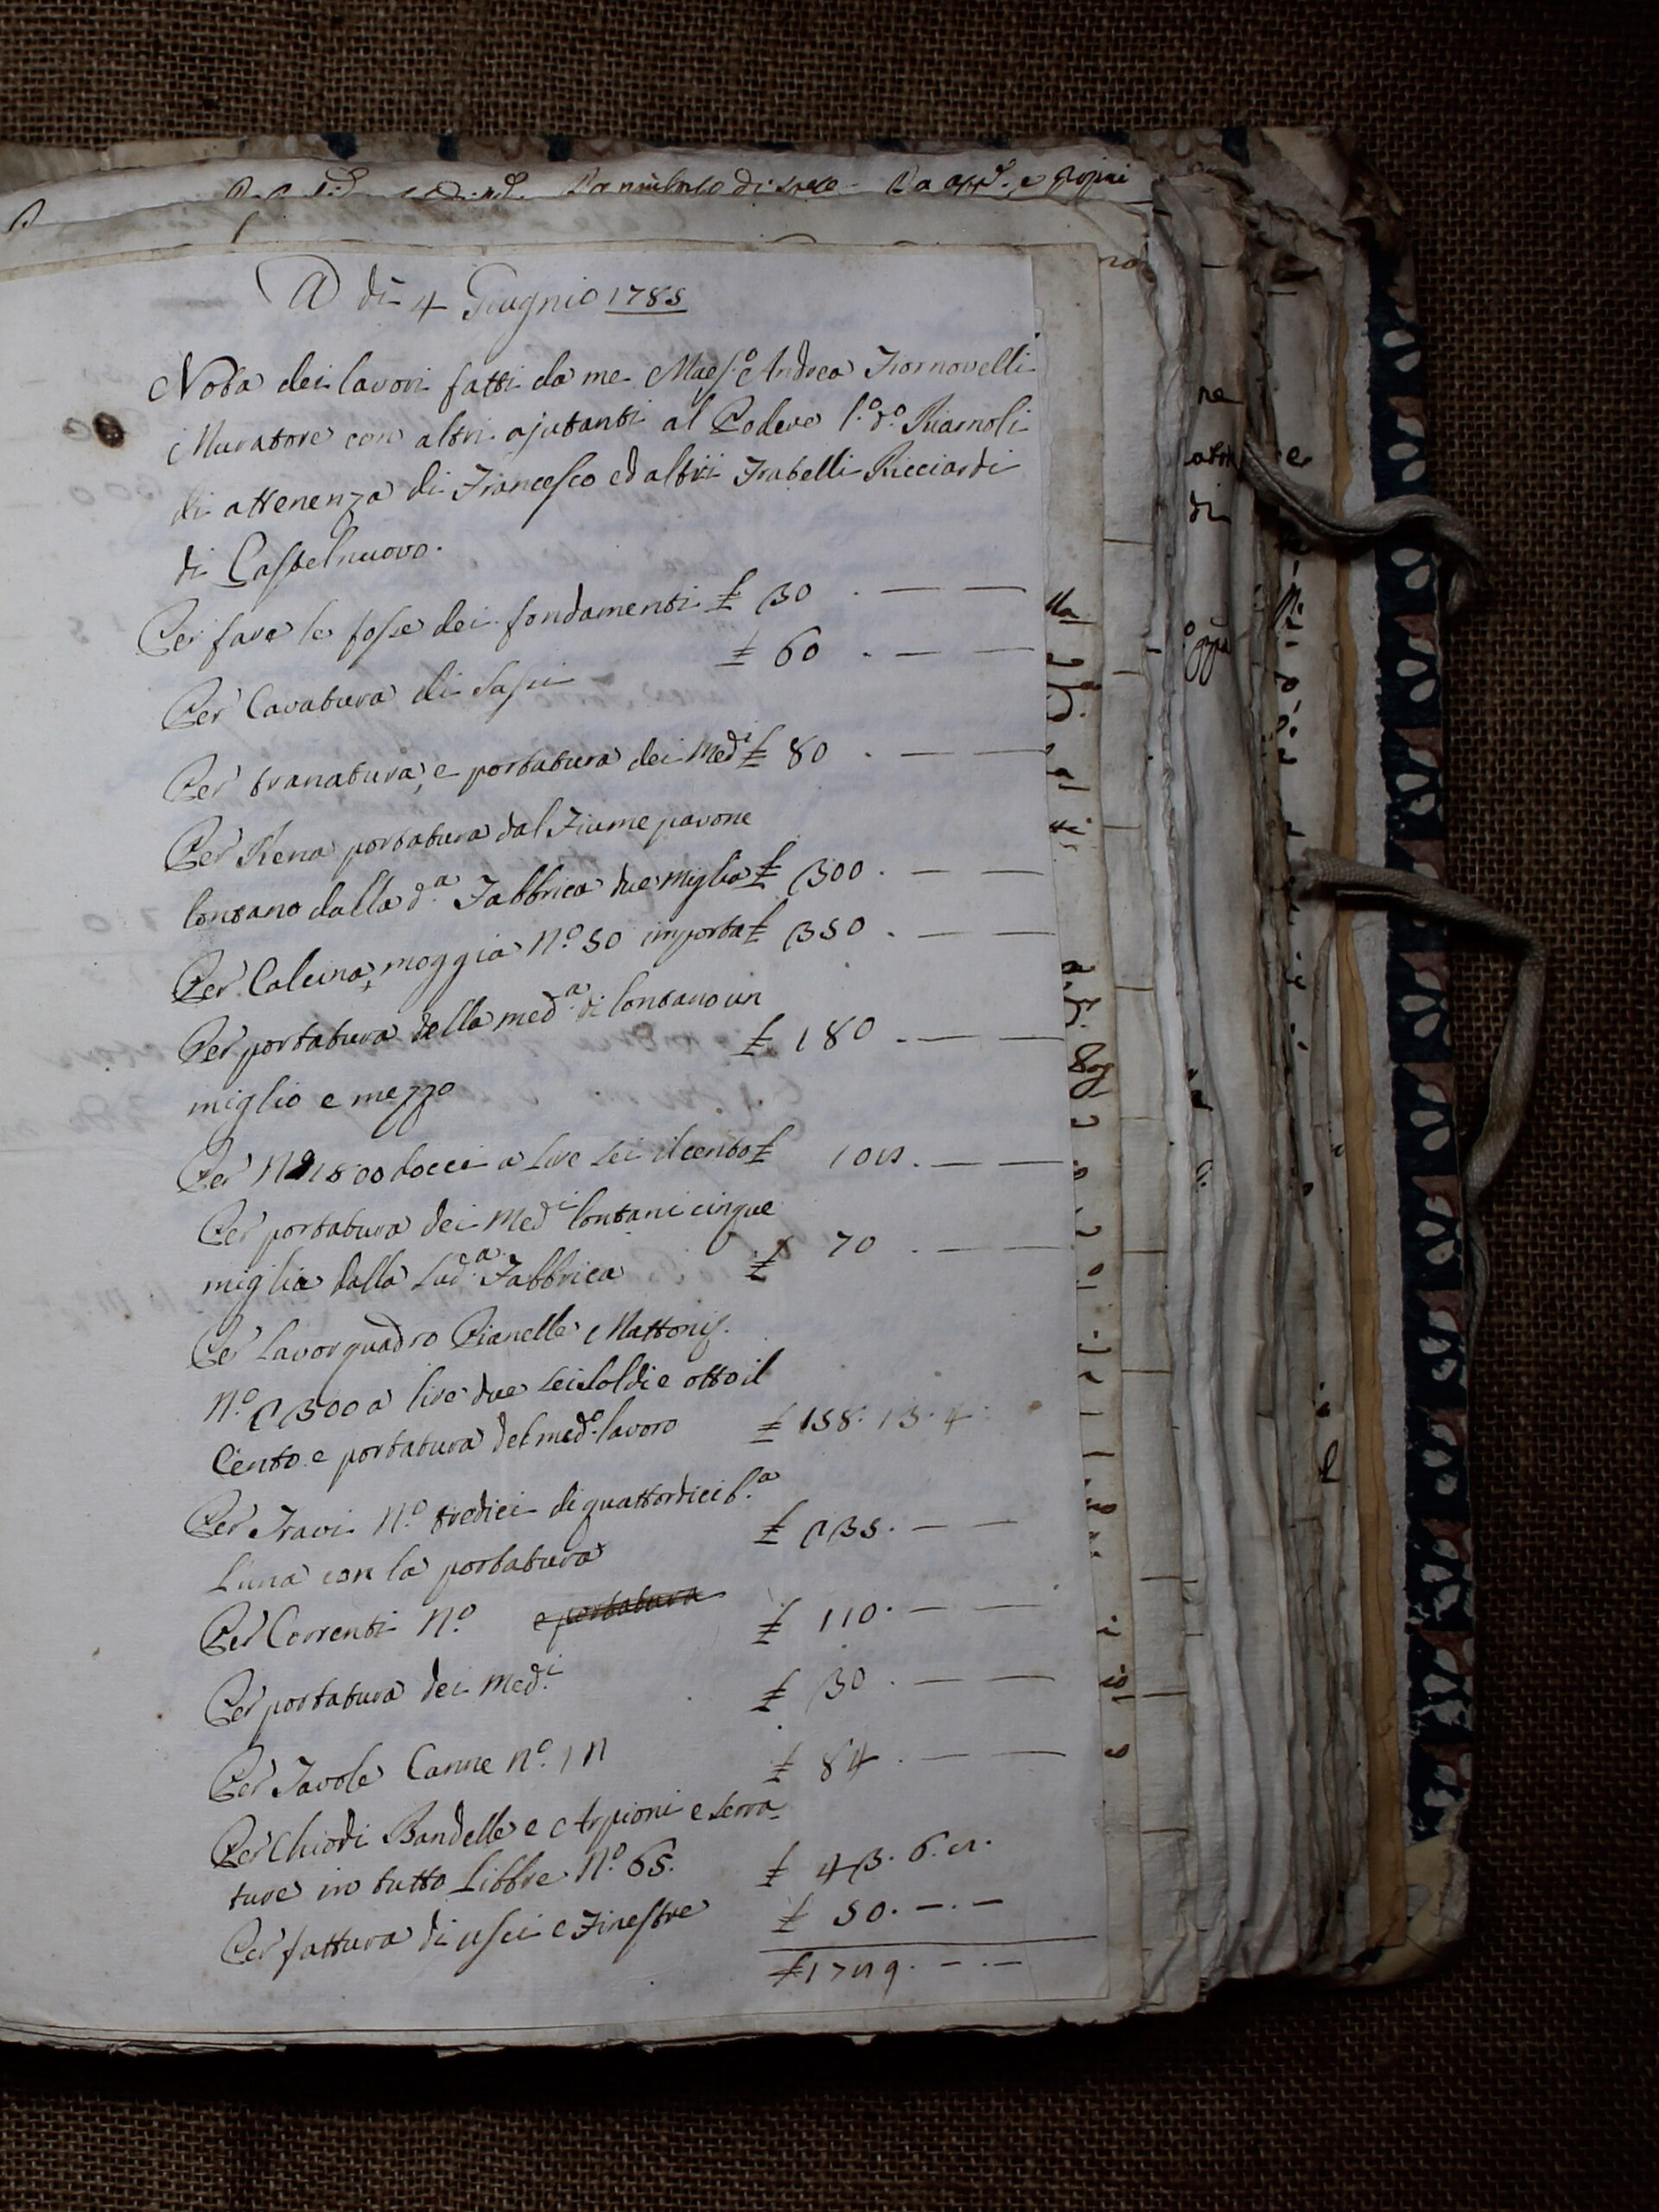 A dì 4 Giugnio 1785
Nota dei lavori fatti da me Maes.º Andrea Fiornovelli
Muratore con altri ajutanti al Podere l.º d.º Riarnoli
di attenenza di Francesco ed altri Fratelli Ricciardi
di Castelnuovo.
Per fare le fosse dei fondamenti £ 30 . — —
Per Cavatura di Sassi £ 60 . — —
Per tranatura, e portatura dei Med.i £ 80 . — —
Per Rena portatura dal Fiume pavone
lontano dalla d.a Fabbrica due Miglia £ 300 . — —
Per Calcina, moggia N.º 50 importa £ 350 . — —
Per portatura della med.a di lontano un
miglio e mezzo £ 180 . — —
Per N.º 1800 docci a Lire sei il cento £ 108 . — —
Per portatura dei Med.i lontani cinque
miglia dalla Sud.a Fabbrica £ 70 . — —
Per Lavor quadro Pianelle Mattoni
N.º 2300 a lire due sei soldi e otto il
Cento e portatura del med.º lavoro £ 158. 13. 4
Per Travi N.º tredici di quattordici b.a
l'una con la portatura £ 235. — —
Per Correnti N.º e portatura £ 110. — —
Per portatura dei Med.i £ 30 . — —
Per Tavole Canne N.º 12 £ 84 . — —
Per Chiodi Bandelle e Arpioni e serra-
ture in tutto Libbre N.º 65. £ 43. 6. 8.
Per fattura di usci e Finestre £ 50. — . —
£ 1729. — . —